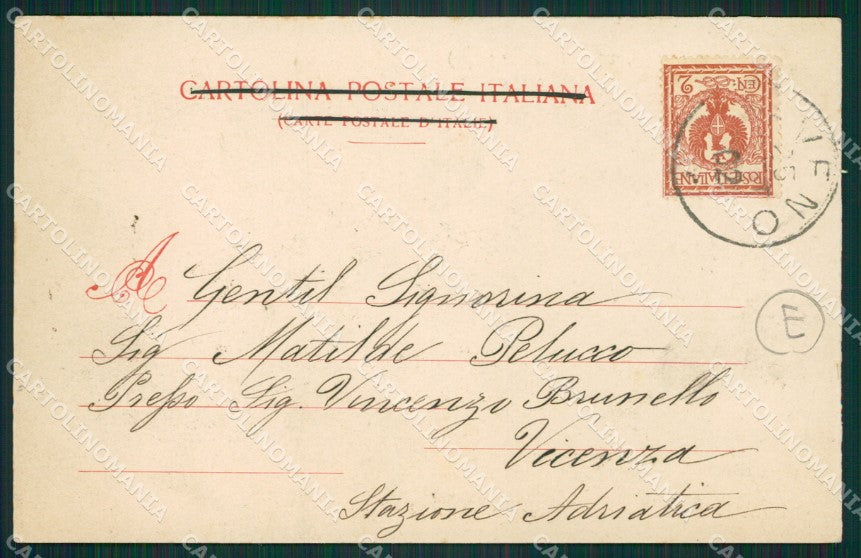 CARTOLINA POSTALE ITALIANA
(CARTE POSTALE D'ITALIE)
CEN. 2
POSTE ITALIANE
A Gentil Signorina
Sig Matilde Pelucco
Presso Sig. Vincenzo Brunello
Vicenza
Stazione Adriatica
E
CARTOLINOMANIA